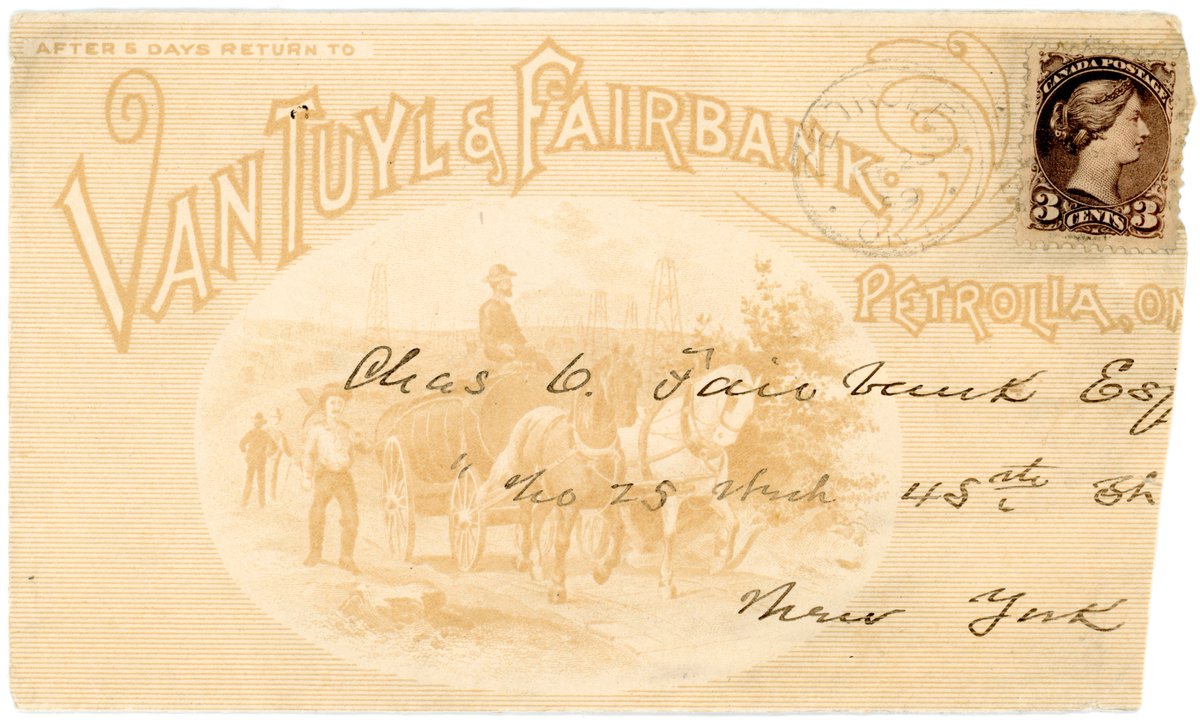 AFTER 5 DAYS RETURN TO
VAN TUYL & FAIRBANK
PETROLIA, ON
CANADA POSTAGE
3 CENTS 3
ONT
Chas O. Fairbank Esq
No 25 West 45th St
New York